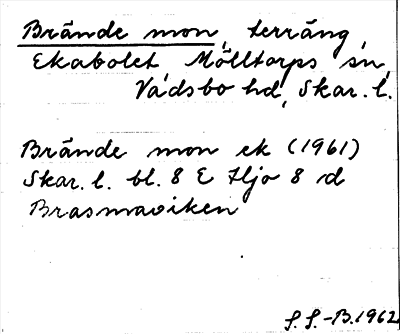 Brände mon, terräng,
Ekabolet Mölltorps sn,
Vadsbo hd, Skar. l.
Brände mon ek (1961)
Skar. l. bl. 8 E Hjo 8 d
Brasmaviken
S. S.-B. 1962